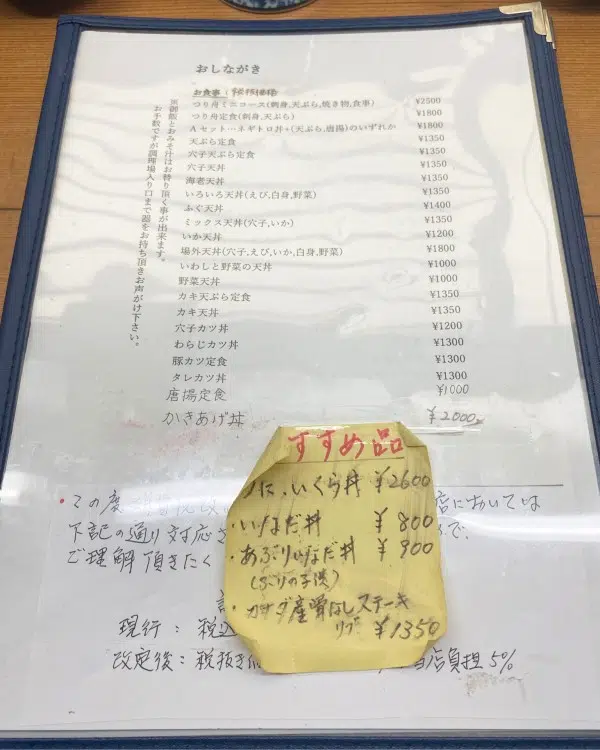 おしながき
お食事:
つり舟ミニコース(刺身,天ぷら,焼き物,食事) ¥2500
つり舟定食(刺身,天ぷら) ¥1800
Aセット…ネギトロ丼+(天ぷら,唐揚)のいずれか ¥1800
天ぷら定食 ¥1350
穴子天ぷら定食 ¥1350
穴子天丼 ¥1350
海老天丼 ¥1350
いろいろ天丼(えび,白身,野菜) ¥1350
ふぐ天丼 ¥1400
ミックス天丼(穴子,いか) ¥1350
いか天丼 ¥1200
場外天丼(穴子,えび,いか,白身,野菜) ¥1800
いわしと野菜の天丼 ¥1000
野菜天丼 ¥1000
カキ天ぷら定食 ¥1350
カキ天丼 ¥1350
穴子カツ丼 ¥1200
わらじカツ丼 ¥1300
豚カツ定食 ¥1300
タレカツ丼 ¥1300
唐揚定食 ¥1000
かきあげ丼 ¥2000
※御飯とおみそ汁はお替り頂く事が出来ます。
お手数ですが調理場入り口まで器をお持ち頂きお声がけ下さい。
すすめ品
に、いくら丼 ¥2600
・いなだ丼 ¥800
・あぶりいなだ丼 ¥900
(ぶりの子供)
・カナダ産骨なしステーキ
リブ ¥1350
・この度 店においては
下記の通り対応さ で、
ご理解頂きたく
現行: 税込
改定後: 税抜き 当店負担5%